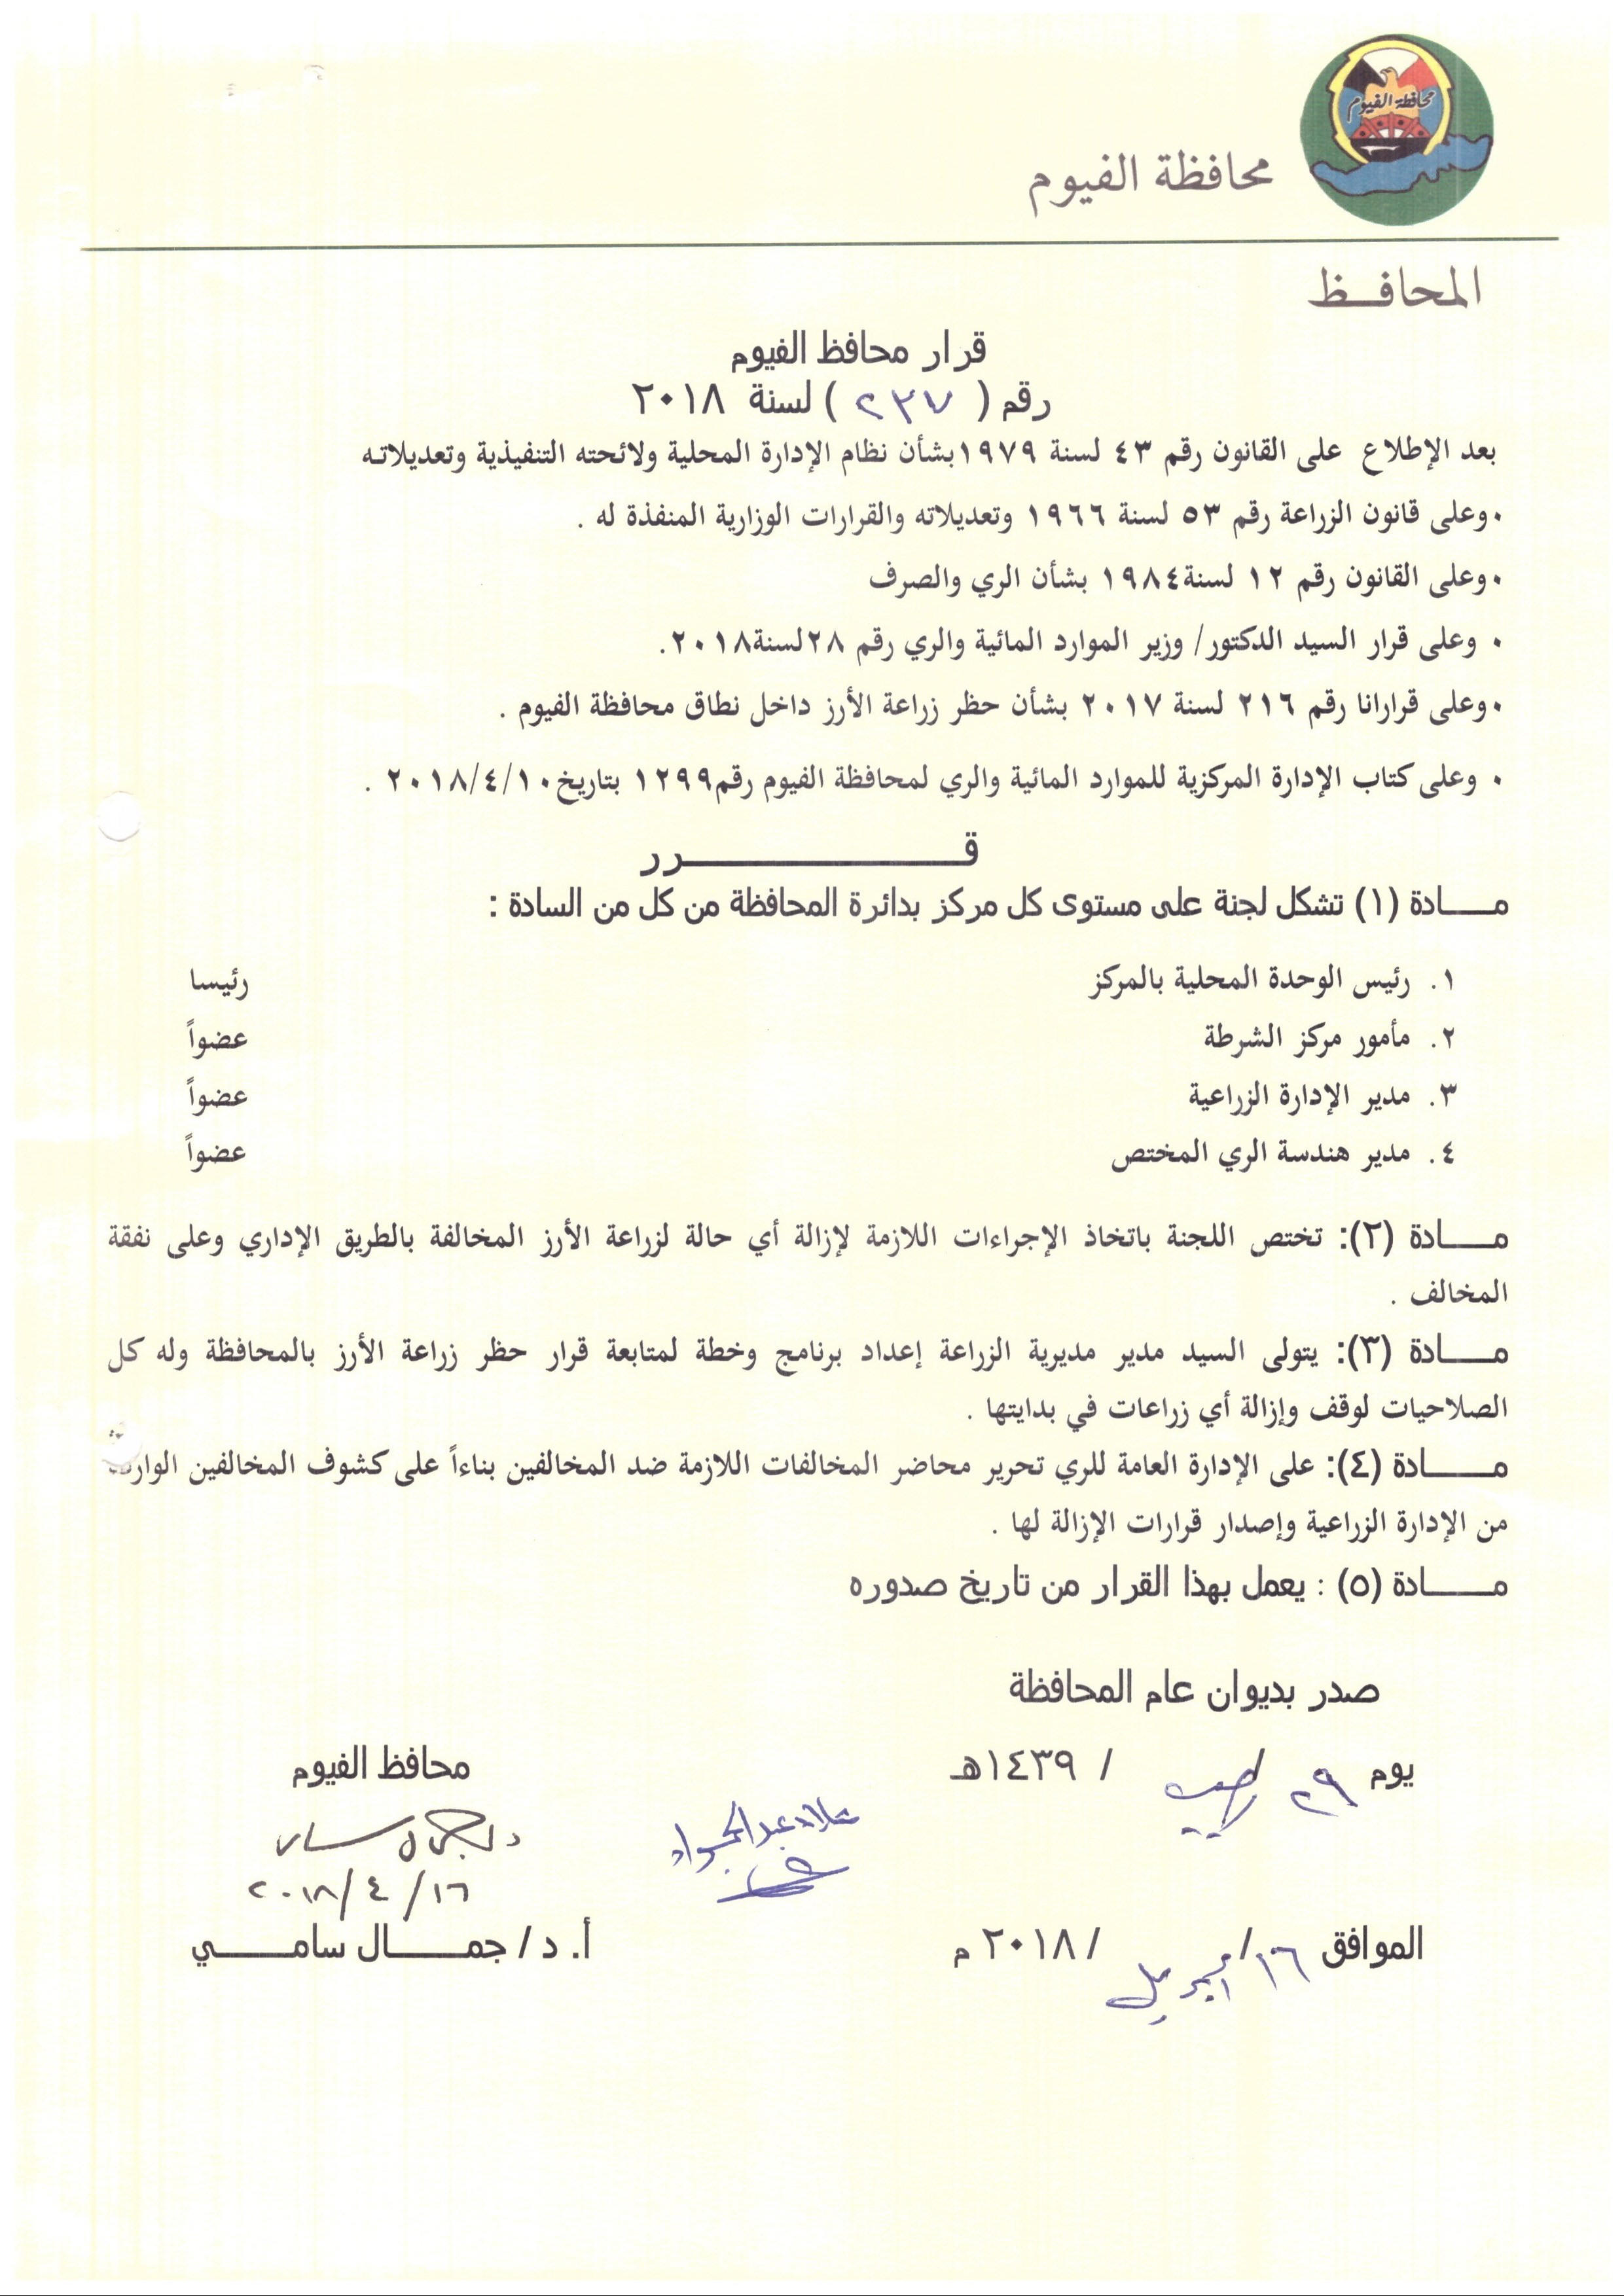 محافظة الفيوم
محافظة الفيوم
المحافـــظ
قرار محافظ الفيوم
رقم ( ٢٣٧ ) لسنة ٢٠١٨
بعد الإطلاع على القانون رقم ٤٣ لسنة ١٩٧٩بشأن نظام الإدارة المحلية ولائحته التنفيذية وتعديلاته
٠وعلى قانون الزراعة رقم ٥٣ لسنة ١٩٦٦ وتعديلاته والقرارات الوزارية المنفذة له .
٠وعلى القانون رقم ١٢ لسنة١٩٨٤ بشأن الري والصرف
٠ وعلى قرار السيد الدكتور/ وزير الموارد المائية والري رقم ٢٨لسنة٢٠١٨.
٠وعلى قرارانا رقم ٢١٦ لسنة ٢٠١٧ بشأن حظر زراعة الأرز داخل نطاق محافظة الفيوم .
٠ وعلى كتاب الإدارة المركزية للموارد المائية والري لمحافظة الفيوم رقم١٢٩٩ بتاريخ٢٠١٨/٤/١٠ .
قـــــــــــــــرر
مـــــادة (١) تشكل لجنة على مستوى كل مركز بدائرة المحافظة من كل من السادة :
١. رئيس الوحدة المحلية بالمركز رئيسا
٢. مأمور مركز الشرطة عضواً
٣. مدير الإدارة الزراعية عضواً
٤. مدير هندسة الري المختص عضواً
مـــــادة (٢): تختص اللجنة باتخاذ الإجراءات اللازمة لإزالة أي حالة لزراعة الأرز المخالفة بالطريق الإداري وعلى نفقة
المخالف .
مـــــادة (٣): يتولى السيد مدير مديرية الزراعة إعداد برنامج وخطة لمتابعة قرار حظر زراعة الأرز بالمحافظة وله كل
الصلاحيات لوقف وإزالة أي زراعات في بدايتها .
مـــــادة (٤): على الإدارة العامة للري تحرير محاضر المخالفات اللازمة ضد المخالفين بناءاً على كشوف المخالفين الواردة
من الإدارة الزراعية وإصدار قرارات الإزالة لها .
مـــــادة (٥) : يعمل بهذا القرار من تاريخ صدوره
صدر بديوان عام المحافظة
يوم ٢٩ / رجب / ١٤٣٩هـ
محافظ الفيوم
علاء عبد الجواد
٢٠١٨/٤/١٦
الموافق ١٦/ أبريل / ٢٠١٨ م
أ. د / جمـــــال سامـــــي